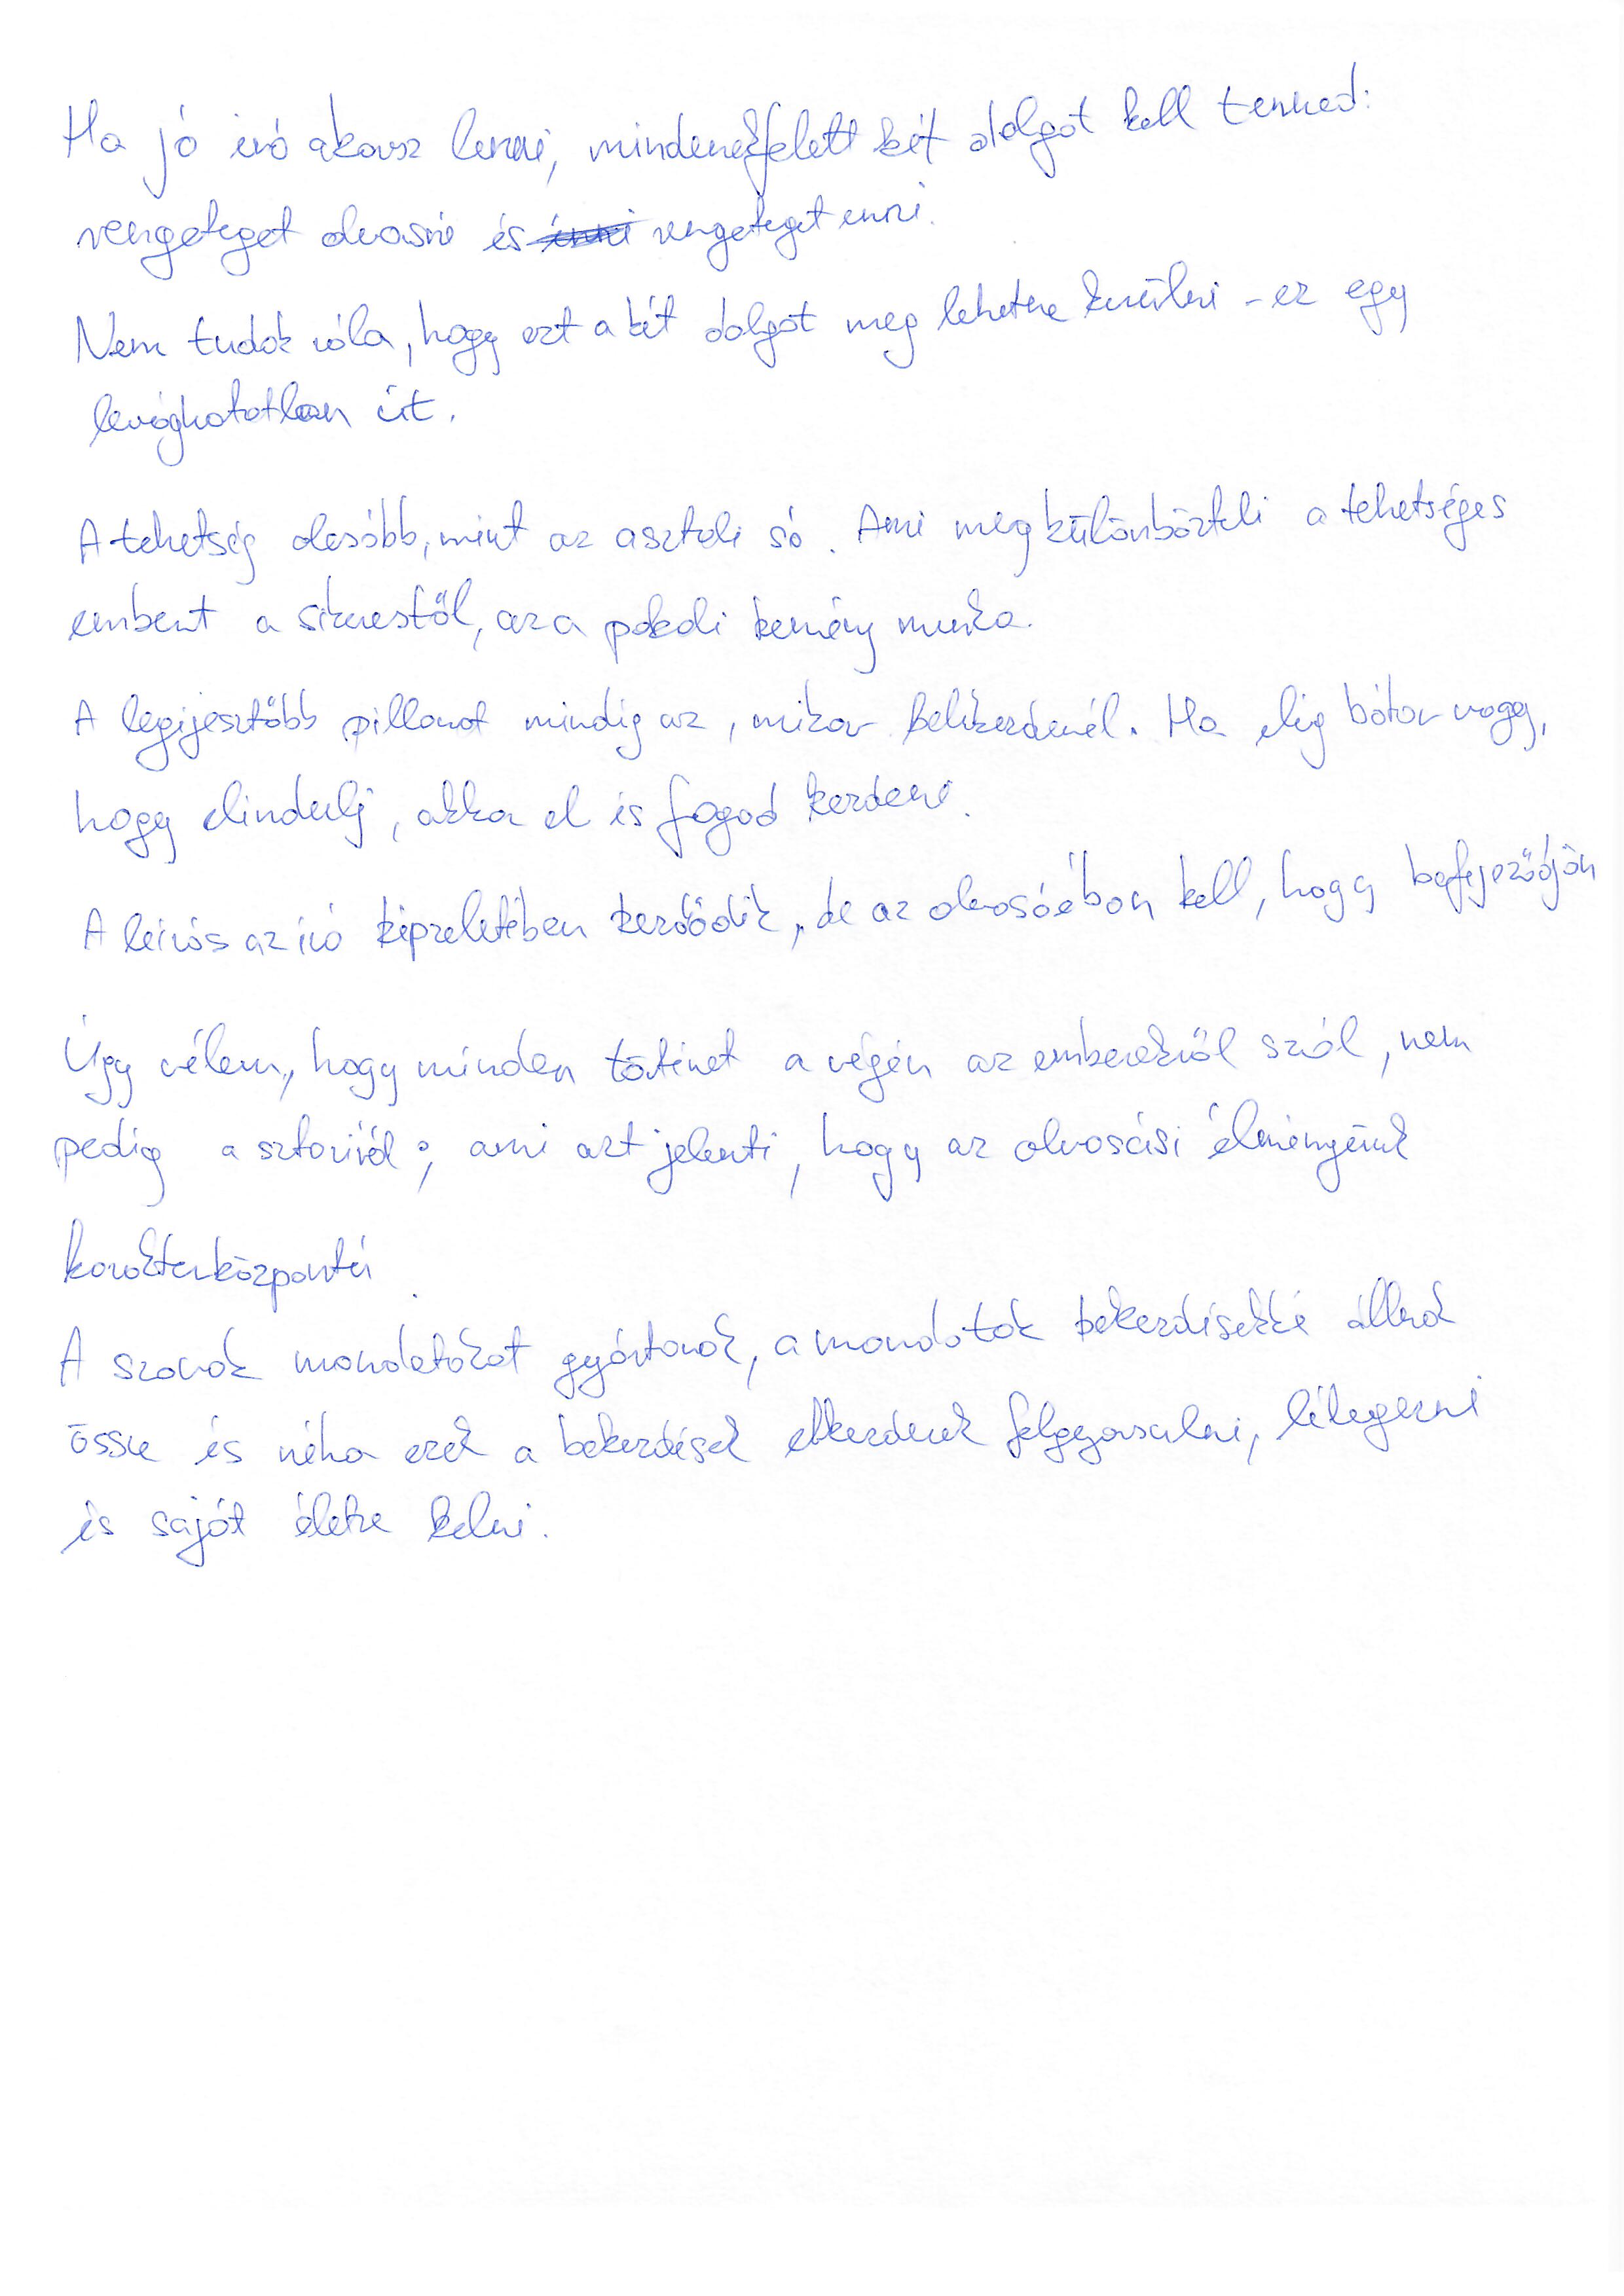 Ha jó író akarsz lenni, mindenekfelett két dolgot kell tenned:
rengeteget olvasni és rengeteget enni.
Nem tudok róla, hogy ezt a két dolgot meg lehetne kerülni - ez egy
levághatatlan út.
A tehetség olcsóbb, mint az asztali só. Ami megkülönbözteti a tehetséges
embert a sikerestől, az a pokoli kemény munka.
A legijesztőbb pillanat mindig az, mikor belekezdenél. Ha elég bátor vagy,
hogy elindulj, akkor el is fogod kezdeni.
A leírás az író képzeletében kezdődik, de az olvasóéban kell, hogy befejeződjön
Úgy vélem, hogy minden történet a végén az emberekről szól, nem
pedig a sztoriról; ami azt jelenti, hogy az olvasási élményünk
karakterközpontú.
A szavak mondatokat gyártanak, a mondatok bekezdésekké állnak
össze és néha ezek a bekezdések elkezdenek felgyorsulni, lélegezni
és saját életre kelni.